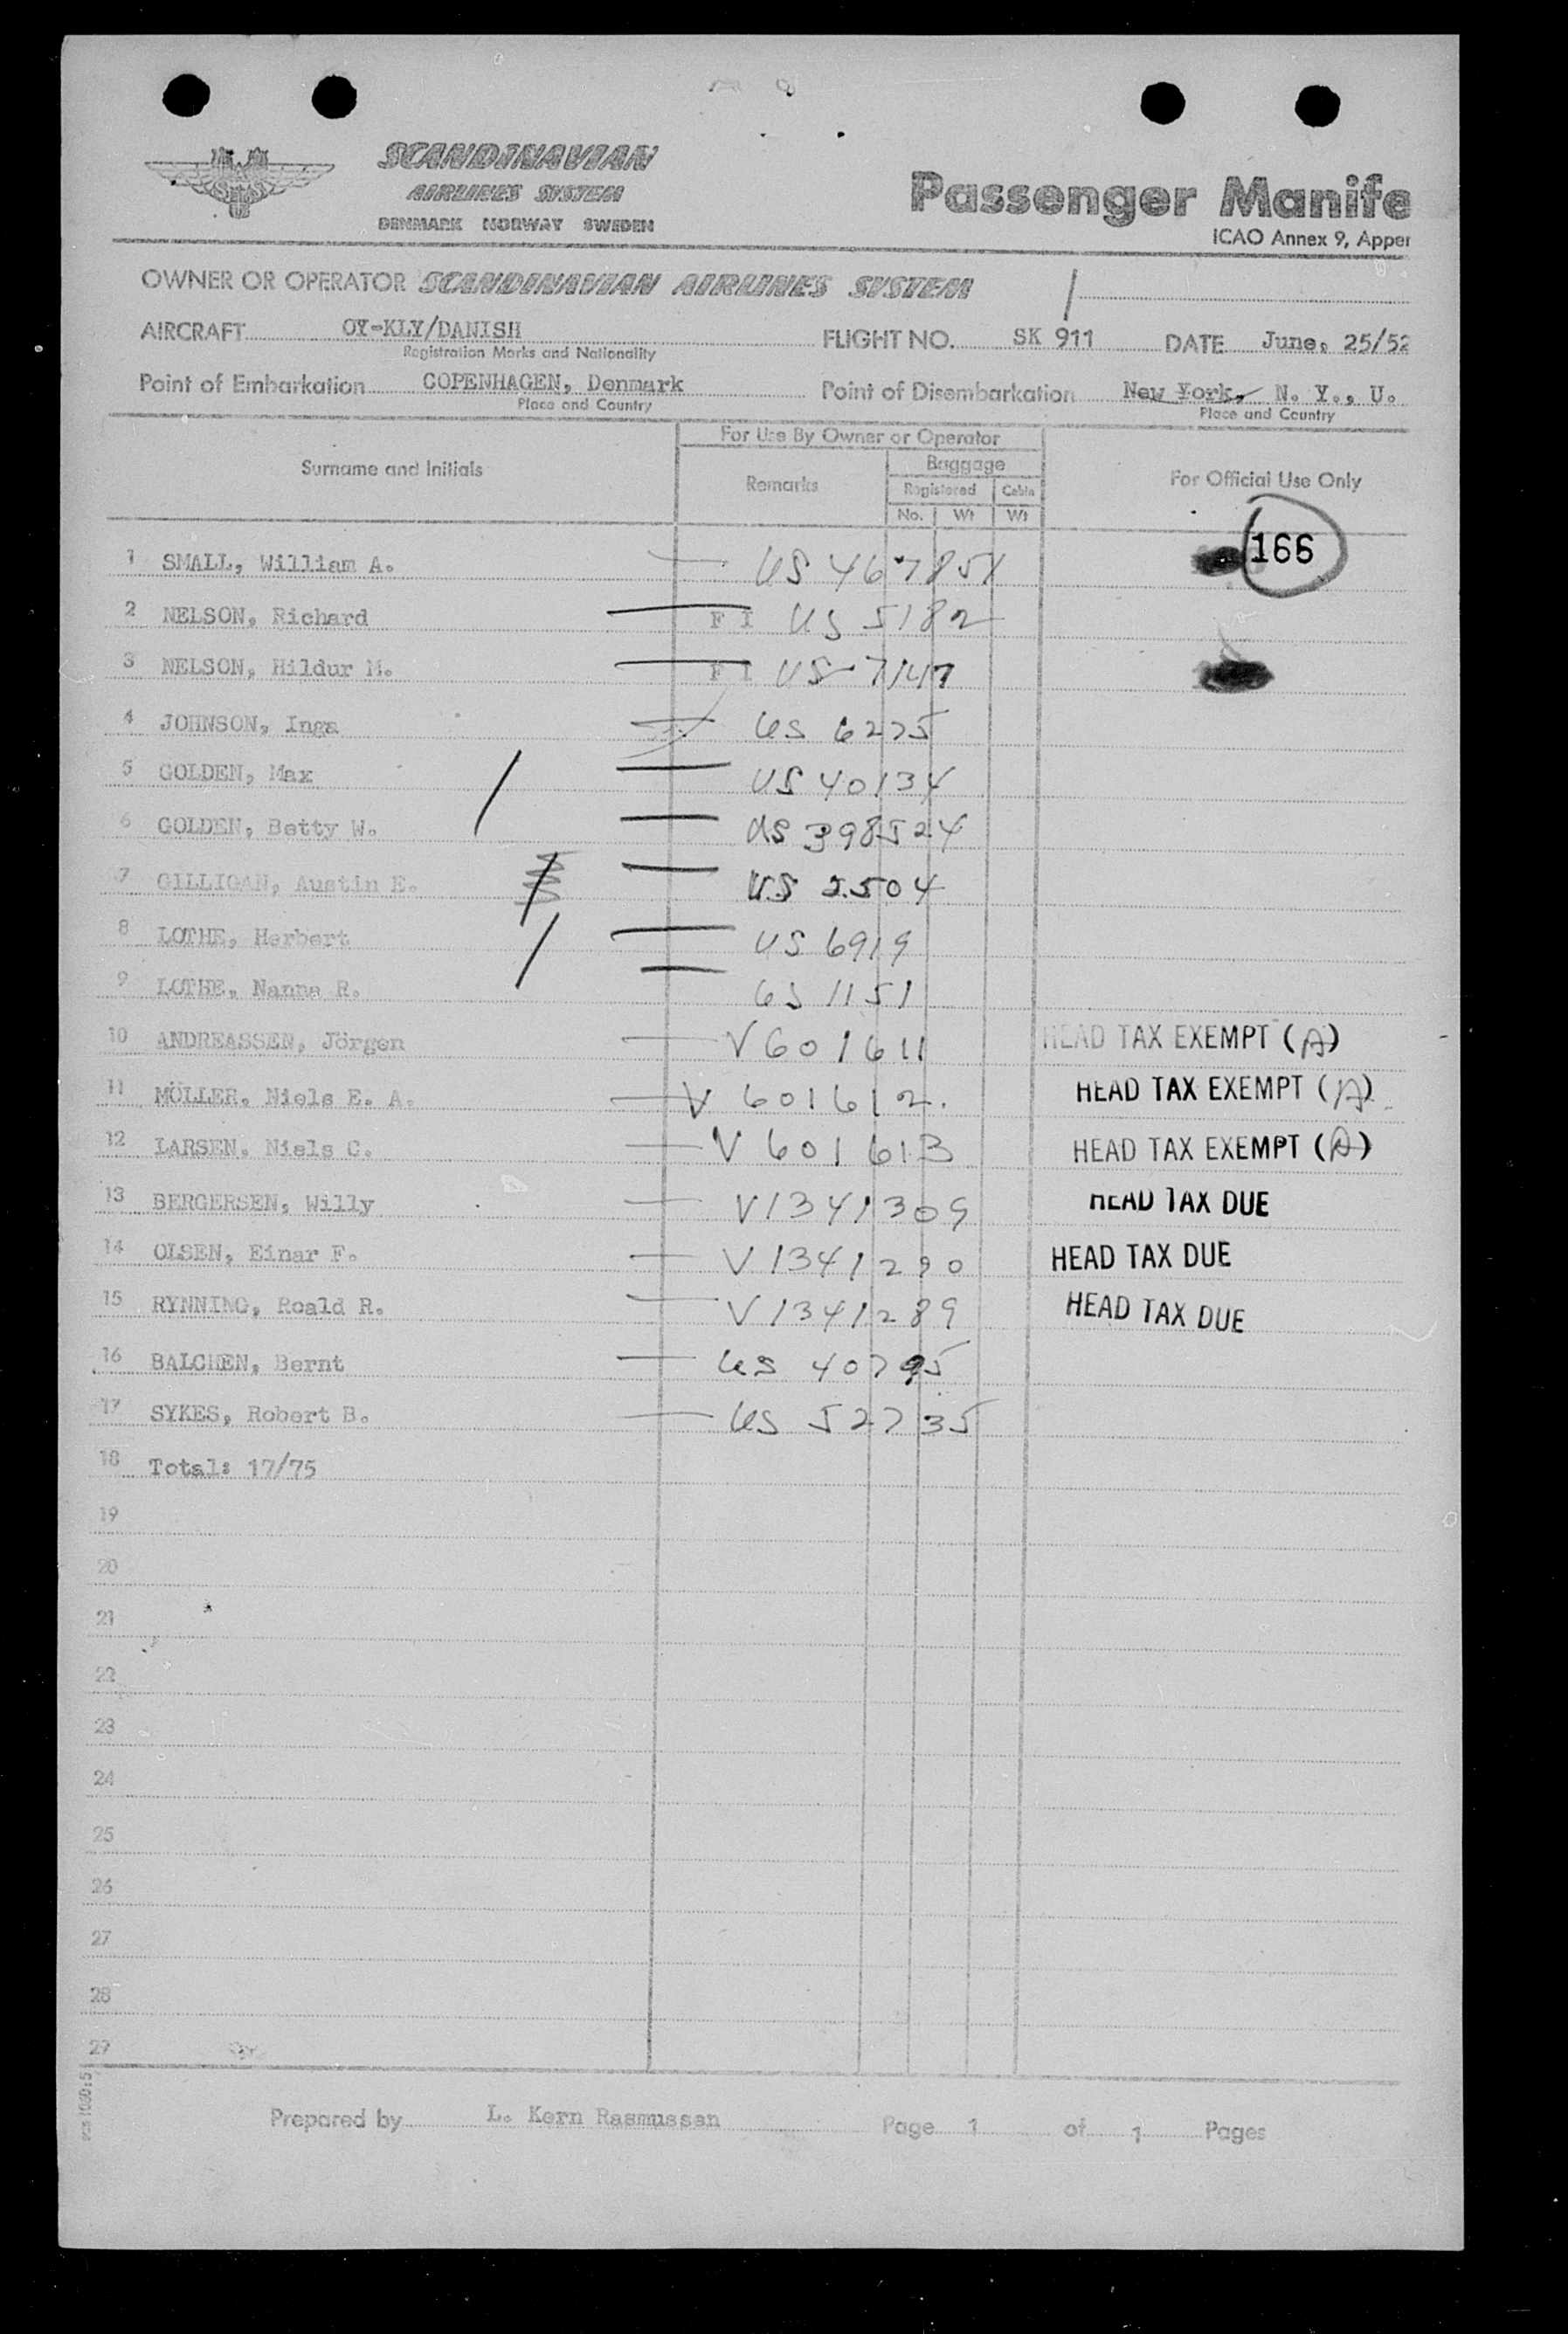 SCANDINAVIAN
AIRLINES SYSTEM
DENMARK NORWAY SWEDEN
Passenger Manife
ICAO Annex 9, Apper
OWNER OR OPERATOR SCANDINAVIAN AIRLINES SYSTEM
AIRCRAFT OY-KLY/DANISH FLIGHT NO. SK 911 DATE June, 25/52
Registration Marks and Nationality
Point of Embarkation COPENHAGEN, Denmark Point of Disembarkation New York, N. Y., U.
Place and Country Place and Country
For Use By Owner or Operator
Surname and Initials Remarks Baggage For Official Use Only
Registered Cabin
No. Wt Wt
166
1 SMALL, William A. US 467851
2 NELSON, Richard F I US 5182
3 NELSON, Hildur M. F I US 7147
4 JOHNSON, Inga US 6275
5 GOLDEN, Max US 40134
6 GOLDEN, Betty W. US 398524
7 GILLIGAN, Austin E. US 2504
8 LOTHE, Herbert US 6919
9 LOTHE, Nanna R. US 1151
10 ANDREASSEN, Jörgen V601611 HEAD TAX EXEMPT (A)
11 MÖLLER, Niels E. A. V 601612. HEAD TAX EXEMPT (A)
12 LARSEN, Niels C. V 601613 HEAD TAX EXEMPT (A)
13 BERGERSEN, Willy V1341309 HEAD TAX DUE
14 OLSEN, Einar F. V 1341290 HEAD TAX DUE
15 RYNNING, Roald R. V 1341289 HEAD TAX DUE
16 BALCHEN, Bernt US 40795
17 SYKES, Robert B. US 52735
18 Total: 17/75
19
20
21
22
23
24
25
26
27
28
29
Prepared by L. Kern Rasmussen Page 1 of 1 Pages